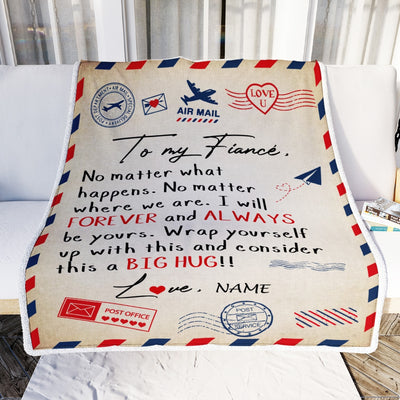 LOVE
U
AIR MAIL
To my Fiancé,
No matter what
happens. No matter
where we are. I will
FOREVER and ALWAYS
be yours. Wrap yourself
up with this and consider
this a BIG HUG!!
Love, NAME
POST OFFICE
POST
SERVICE